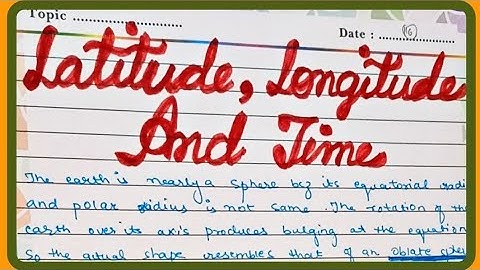 Topic ........................
Date : ..................
16
Latitude, Longitude
And Time
The earth is nearly a sphere bcz its equatorial radi
and polar radius is not same. The rotation of the
earth over its axis produces bulging at the equation
So the actual shape resembles that of an oblate